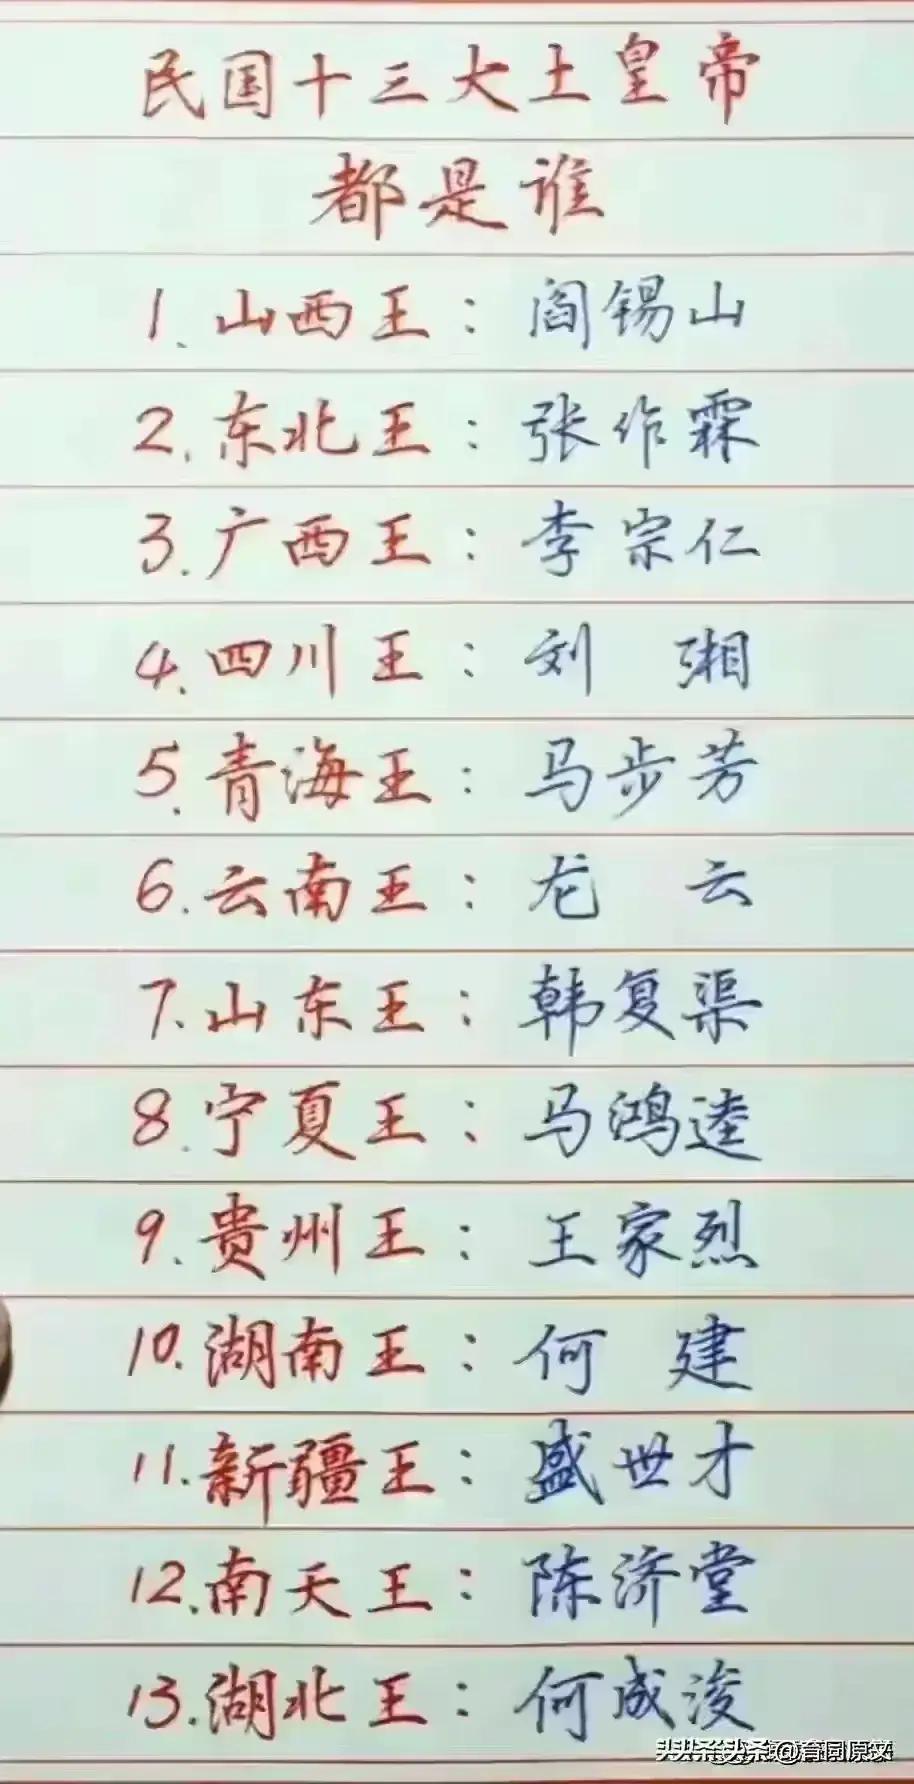 民国十三大土皇帝
都是谁
1.山西王：阎锡山
2.东北王：张作霖
3.广西王：李宗仁
4.四川王：刘湘
5.青海王：马步芳
6.云南王：龙云
7.山东王：韩复渠
8.宁夏王：马鸿逵
9.贵州王：王家烈
10.湖南王：何建
11.新疆王：盛世才
12.南天王：陈济堂
13.湖北王：何成浚